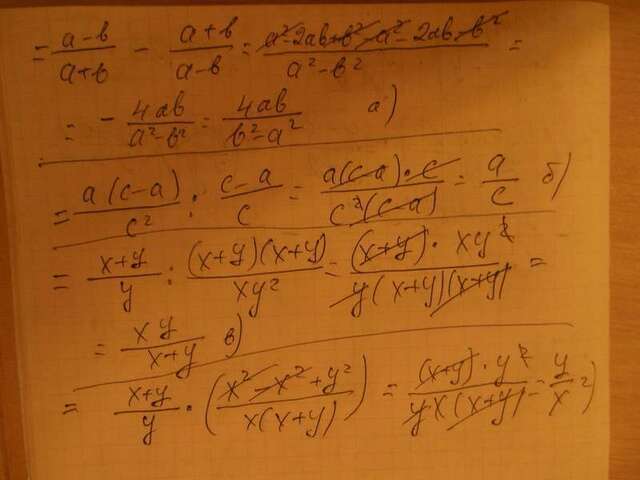 = (a-b)/(a+b) - (a+b)/(a-b) = (a²-2ab+b²-a²-2ab-b²)/(a²-b²) =
= - 4ab/(a²-b²) = 4ab/(b²-a²) а)
= a(c-a)/c² : (c-a)/c = a(c-a)·c/c²(c-a) = a/c б)
= (x+y)/y : (x+y)(x+y)/xy² = (x+y)·xy²/y(x+y)(x+y) =
= xy/(x+y) в)
= (x+y)/y · ((x²-x²+y²)/x(x+y)) = (x+y)·y²/yx(x+y) = y/x г)